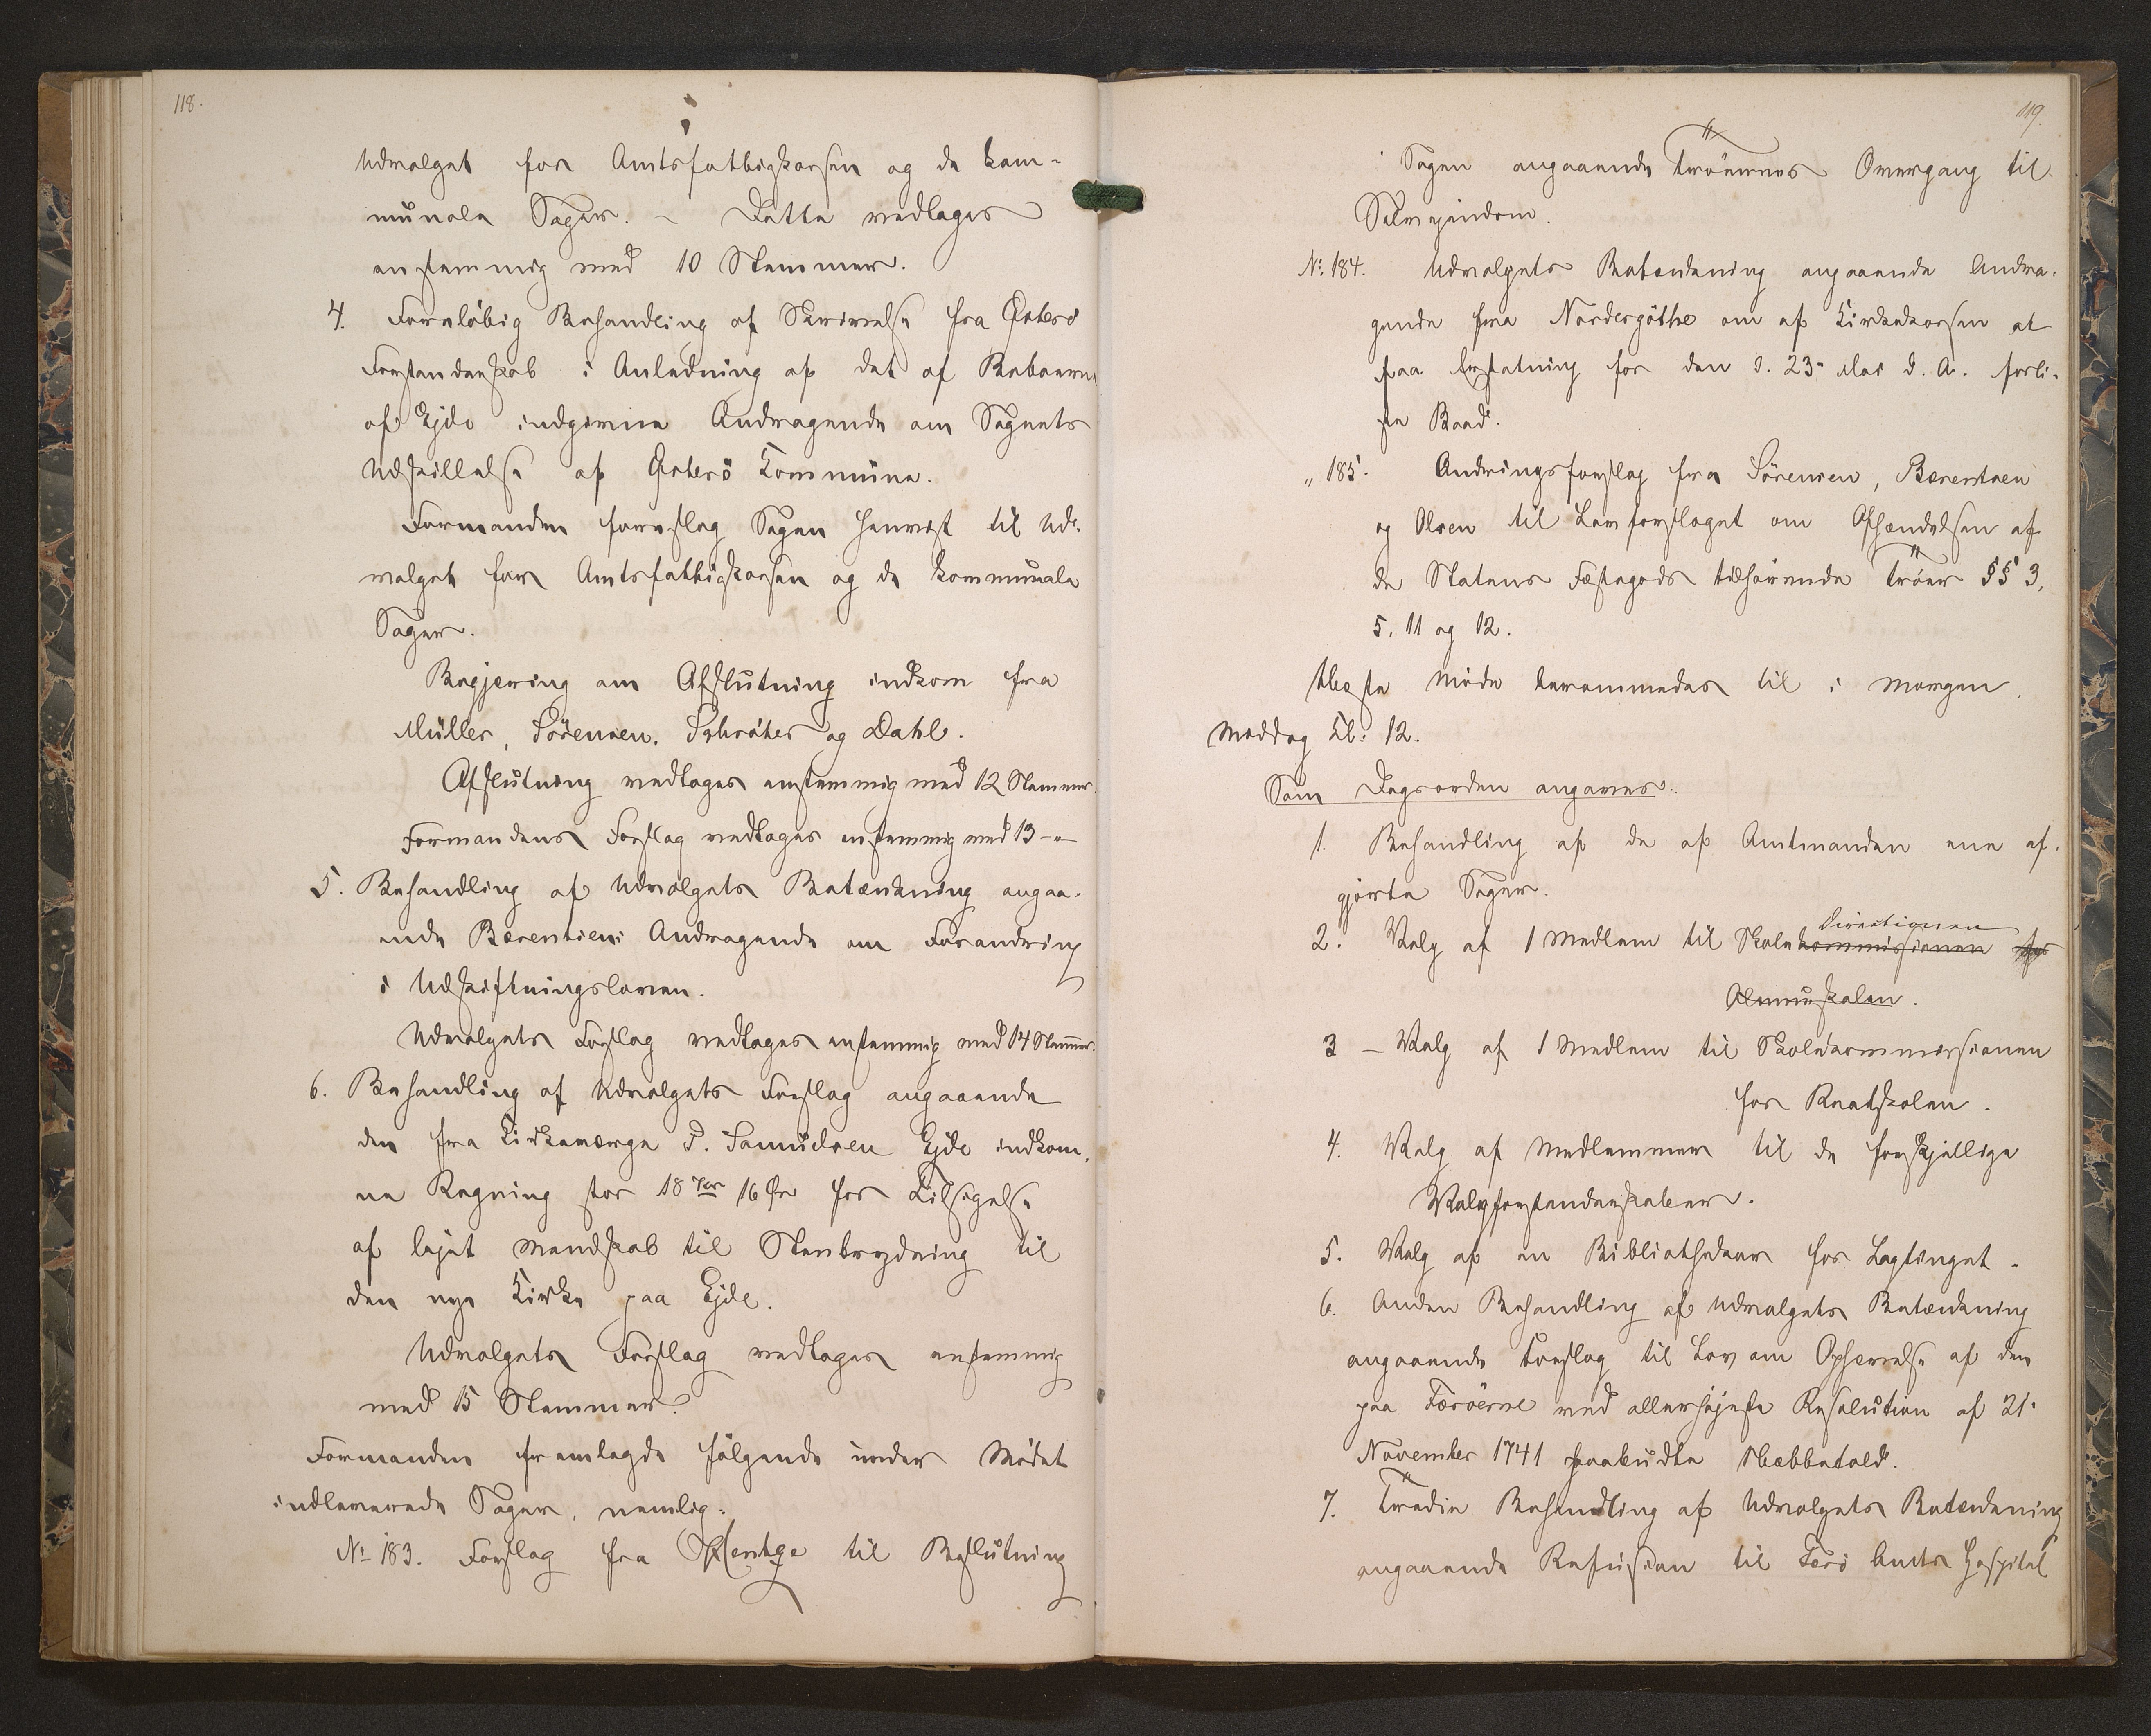 118.
Udvalget for Amtsfattigkassen og de kom-
munale Sager. - Dette vedtages
enstemmig med 10 Stemmer.
4. Foreløbig Behandling af Skrivelse fra Østerø
Forstanderskab i Anledning af det af Beboerne
af Ejde indgivne Andragende om Sognets
Udskillelse af Østerø Kommune.
Formanden foreslog Sagen henvist til Ud-
valget for Amtsfattigkassen og de kommunale
Sager.
Begjæring om Afslutning indkom fra
Müller, Sörensen, Schrøter og Dahl.
Afslutning vedtages enstemmig med 12 Stemmer.
Formandens Forslag vedtages enstemmig med 13 -"-
5. Behandling af Udvalgets Betænkning angaa-
ende Bærentsens Andragende om Forandring
i Udskiftningsloven.
Udvalgets Forslag vedtages enstemmig med 14 Stemmer.
6. Behandling af Udvalgets Forslag angaaende
den fra Kirkeværge P. Samuelsen Ejde indkom-
ne Regning stor 18 Kr 16 Øre for Tilsigelse
af lejet Mandskab til Stenbrydning til
den nye Kirke paa Ejde.
Udvalgets Forslag vedtages enstemmig
med 15 Stemmer.
Formanden fremlagde følgende under Mødet
indleverede Sager, nemlig:
No 183. Forslag fra Hentze til Beslutning
119.
Sagen angaaende Trøernes Overgang til
Selvejendom.
No. 184. Udvalgets Betænkning angaaende Andra-
gende fra Nordregöthe om af Kirkekassen at
faa Erstatning for den d. 23. Mai d. A. forli-
ste Baad.
" 185. Ændringsforslag fra Sörensen, Bærentsen
og Olsen til Lovforslaget om Afhændelsen af
de Statens Fæstegods tilhørende Tröer §§ 3,
5, 11 og 12.
Næste Møde berammedes til i Morgen
Middag Kl. 12.
Som Dagsorden angaves:
1. Behandling af de af Amtmanden ene af-
gjorte Sager.
Directionen
2. Valg af 1 Medlem til Skolekommissionen for
Almueskolen.
3 - Valg af 1 Medlem til Skolekommissionen
for Realskolen.
4. Valg af Medlemmer til de forskjellige
Valgforstanderskaber.
5. Valg af en Bibliothekar for Lagtinget.
6. Anden Behandling af Udvalgets Betænkning
angaaende Forslag til Lov om Ophævelse af den
paa Færöerne ved allerhøjeste Resolution af 21.
November 1741 paabudte Næbbetold.
7. Tredie Behandling af Udvalgets Betænkning
angaaende Refusion til Færø Amts Hospital